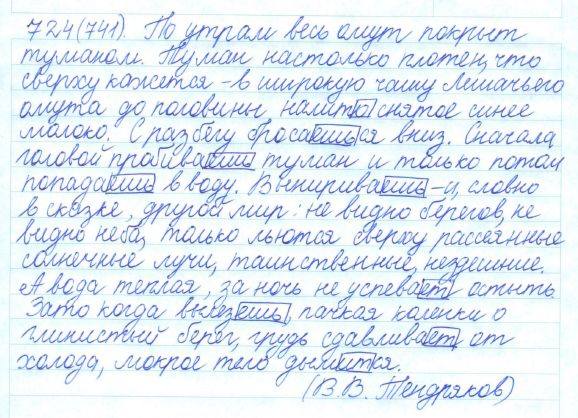 724(741). По утрам весь омут покрыт
туманом. Туман настолько плотен, что
сверху кажется – в широкую чашу Лешачьего
омута до половины налито снятое синее
молоко. С разбегу бросаешься вниз. Сначала
головой пробиваешь туман и только потом
попадаешь в воду. Выныриваешь – и, словно
в сказке, другой мир: не видно берегов, не
видно неба, только льются сверху рассеянные
солнечные лучи, таинственные, нездешние.
А вода теплая, за ночь не успевает остыть.
Зато когда вылезешь, пачкая коленки о
глинистый берег, грудь сдавливает от
холода, мокрое тело дымится.
(В.В. Тендряков)